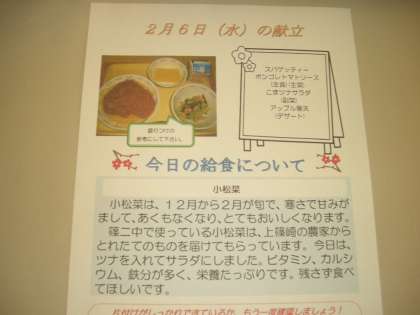 2月6日（水）の献立
スパゲッティー
ボンゴレトマトソース
（主食）（主菜）
こまツナサラダ
（副菜）
アップル寒天
（デザート）
盛付けの
参考にして下さい。
今日の給食について
小松菜
小松菜は、12月から2月が旬で、寒さで甘みが
まして、あくもなくなり、とてもおいしくなります。
篠二中で使っている小松菜は、上篠崎の農家から
とれたてのものを届けてもらっています。今日は、
ツナを入れてサラダにしました。ビタミン、カルシ
ウム、鉄分が多く、栄養たっぷりです。残さず食べ
てほしいです。
片付けがしっかりできているか、もう一度確認しましょう！